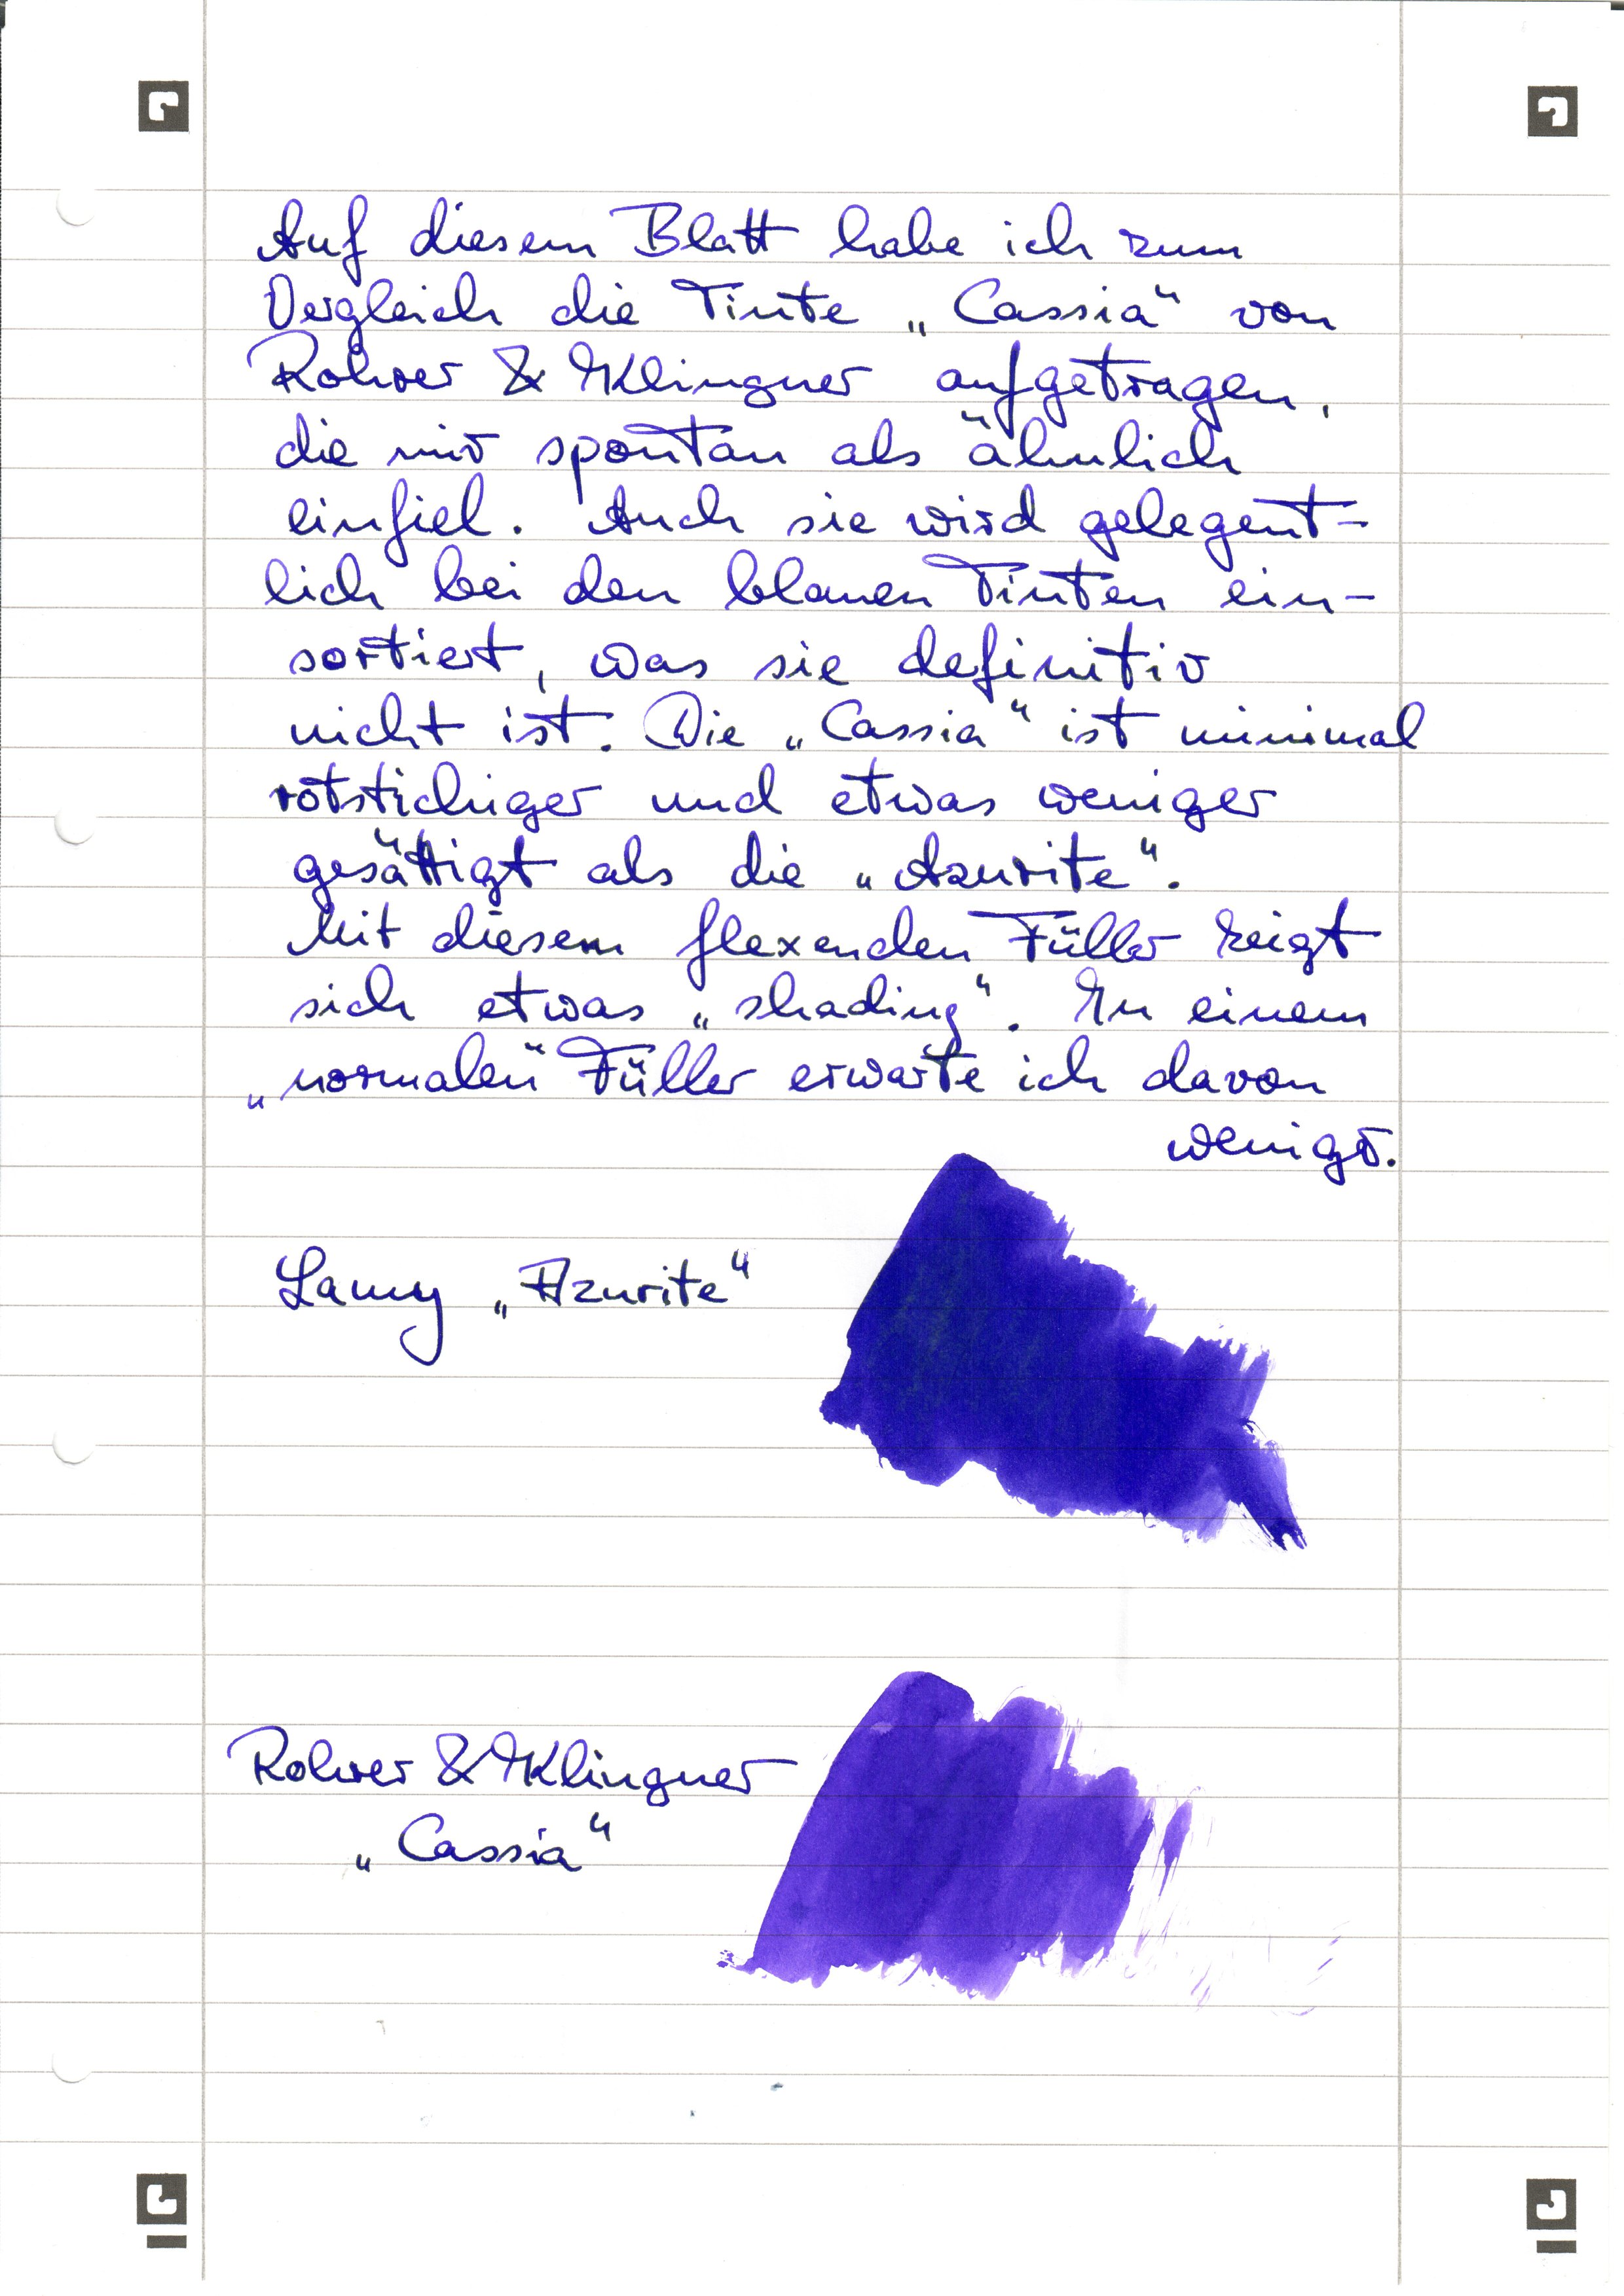 Auf diesem Blatt habe ich zum
Vergleich die Tinte „Cassia" von
Rohrer & Klingner aufgetragen,
die mir spontan als ähnlich
einfiel. Auch sie wird gelegent-
lich bei den blauen Tinten ein-
sortiert, was sie definitiv
nicht ist. Die „Cassia" ist minimal
rotstichiger und etwas weniger
gesättigt als die „Azurite".
Mit diesem flexenden Füller zeigt
sich etwas „shading". In einem
„normalen" Füller erwarte ich davon
weniger.
Lamy „Azurite"
Rohrer & Klingner
„Cassia"